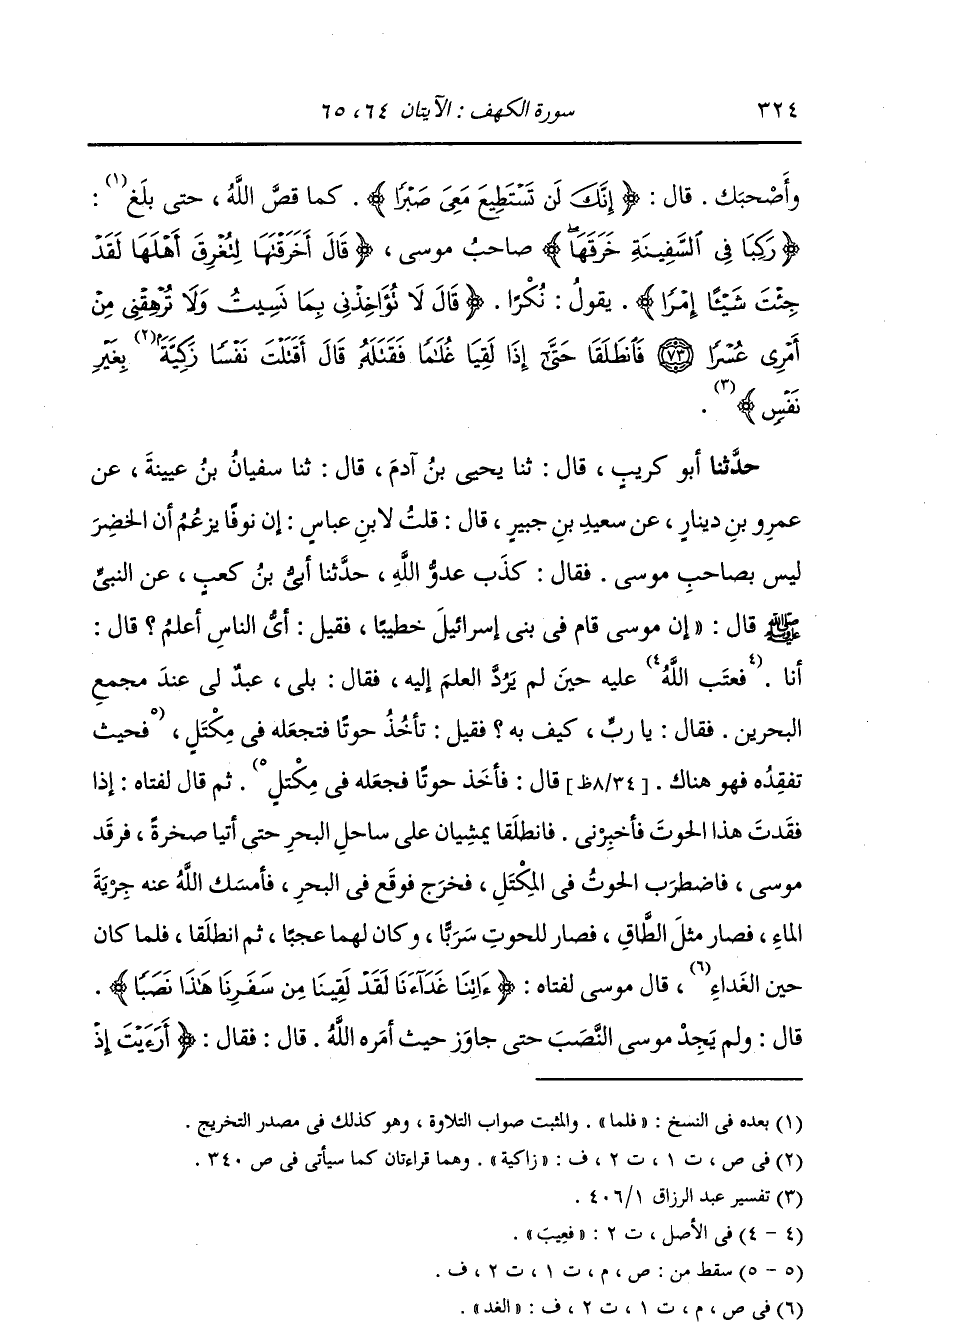 ٣٢٤ سورة الكهف : الآيتان ٦٤ ، ٦٥
وأَصْحبَك . قال : ﴿ إِنَّكَ لَن تَسْتَطِيعَ مَعِىَ صَبْرًا ﴾ . كما قصَّ اللَّهُ ، حتى بلَغ (١) :
﴿ رَكِبَا فِى ٱلسَّفِينَةِ خَرَقَهَاۖ ﴾ صاحبُ موسى ، ﴿ قَالَ أَخَرَقْتَهَا لِتُغْرِقَ أَهْلَهَا لَقَدْ
جِئْتَ شَيْـًٔا إِمْرًا ﴾ . يقولُ : نُكْرًا . ﴿ قَالَ لَا تُؤَاخِذْنِى بِمَا نَسِيتُ وَلَا تُرْهِقْنِى مِنْ
أَمْرِى عُسْرًا ٧٣ فَٱنطَلَقَا حَتَّىٰٓ إِذَا لَقِيَا غُلَـٰمًا فَقَتَلَهُۥ قَالَ أَقَتَلْتَ نَفْسًا زَكِيَّةًۢ (٢) بِغَيْرِ
نَفْسٍ ﴾ (٣) .
حدَّثنا أبو كريبٍ ، قال : ثنا يحيى بنُ آدمَ ، قال : ثنا سفيانُ بنُ عيينةَ ، عن
عمرِو بنِ دينارٍ ، عن سعيدِ بنِ جبيرٍ ، قال : قلتُ لابنِ عباسٍ : إن نوفًا يزعُمُ أن الخضِرَ
ليس بصاحبِ موسى . فقال : كذَب عدوُّ اللَّهِ ، حدَّثنا أُبىُّ بنُ كعبٍ ، عن النبىِّ
ﷺ قال : « إن موسى قام فى بنى إسرائيلَ خطيبًا ، فقيل : أىُّ الناسِ أعلمُ ؟ قال :
أنا . (٤ فعتَب اللَّهُ ٤) عليه حينَ لم يَرُدَّ العلمَ إليه ، فقال : بلى ، عبدٌ لى عندَ مجمعِ
البحرين . فقال : يا ربِّ ، كيف به ؟ فقيل : تأخُذُ حوتًا فتجعَله فى مِكْتَلٍ ، (٥ فحيث
تفقِدُه فهو هناك . [ ٨/٣٤ظ ] قال : فأخَذ حوتًا فجعَله فى مِكْتلٍ ٥) . ثم قال لفتاه : إذا
فقَدتَ هذا الحوتَ فأخبِرْنى . فانطلَقا يمشِيان على ساحلِ البحرِ حتى أتيا صخرةً ، فرقَد
موسى ، فاضطرَب الحوتُ فى المِكْتَلِ ، فخرَج فوقَع فى البحرِ ، فأمسَك اللَّهُ عنه جِرْيَةَ
الماءِ ، فصار مثلَ الطَّاقِ ، فصار للحوتِ سَرَبًا ، وكان لهما عجبًا ، ثم انطلَقا ، فلما كان
حين الغَداءِ (٦) ، قال موسى لفتاه : ﴿ ءَاتِنَا غَدَآءَنَا لَقَدْ لَقِينَا مِن سَفَرِنَا هَـٰذَا نَصَبًا ﴾ .
قال : ولم يَجِدْ موسى النَّصَبَ حتى جاوَز حيث أمَره اللَّهُ . قال : فقال : ﴿ أَرَءَيْتَ إِذْ
(١) بعده فى النسخ : « فلما » . والمثبت صواب التلاوة ، وهو كذلك فى مصدر التخريج .
(٢) فى ص ، ت ١ ، ت ٢ ، ف : « زاكية » . وهما قراءتان كما سيأتى فى ص ٣٤٠ .
(٣) تفسير عبد الرزاق ٤٠٦/١ .
(٤ - ٤) فى الأصل ، ت ٢ : « فعِيبَ » .
(٥ - ٥) سقط من : ص ، م ، ت ١ ، ت ٢ ، ف .
(٦) فى ص ، م ، ت ١ ، ت ٢ ، ف : « الغد » .